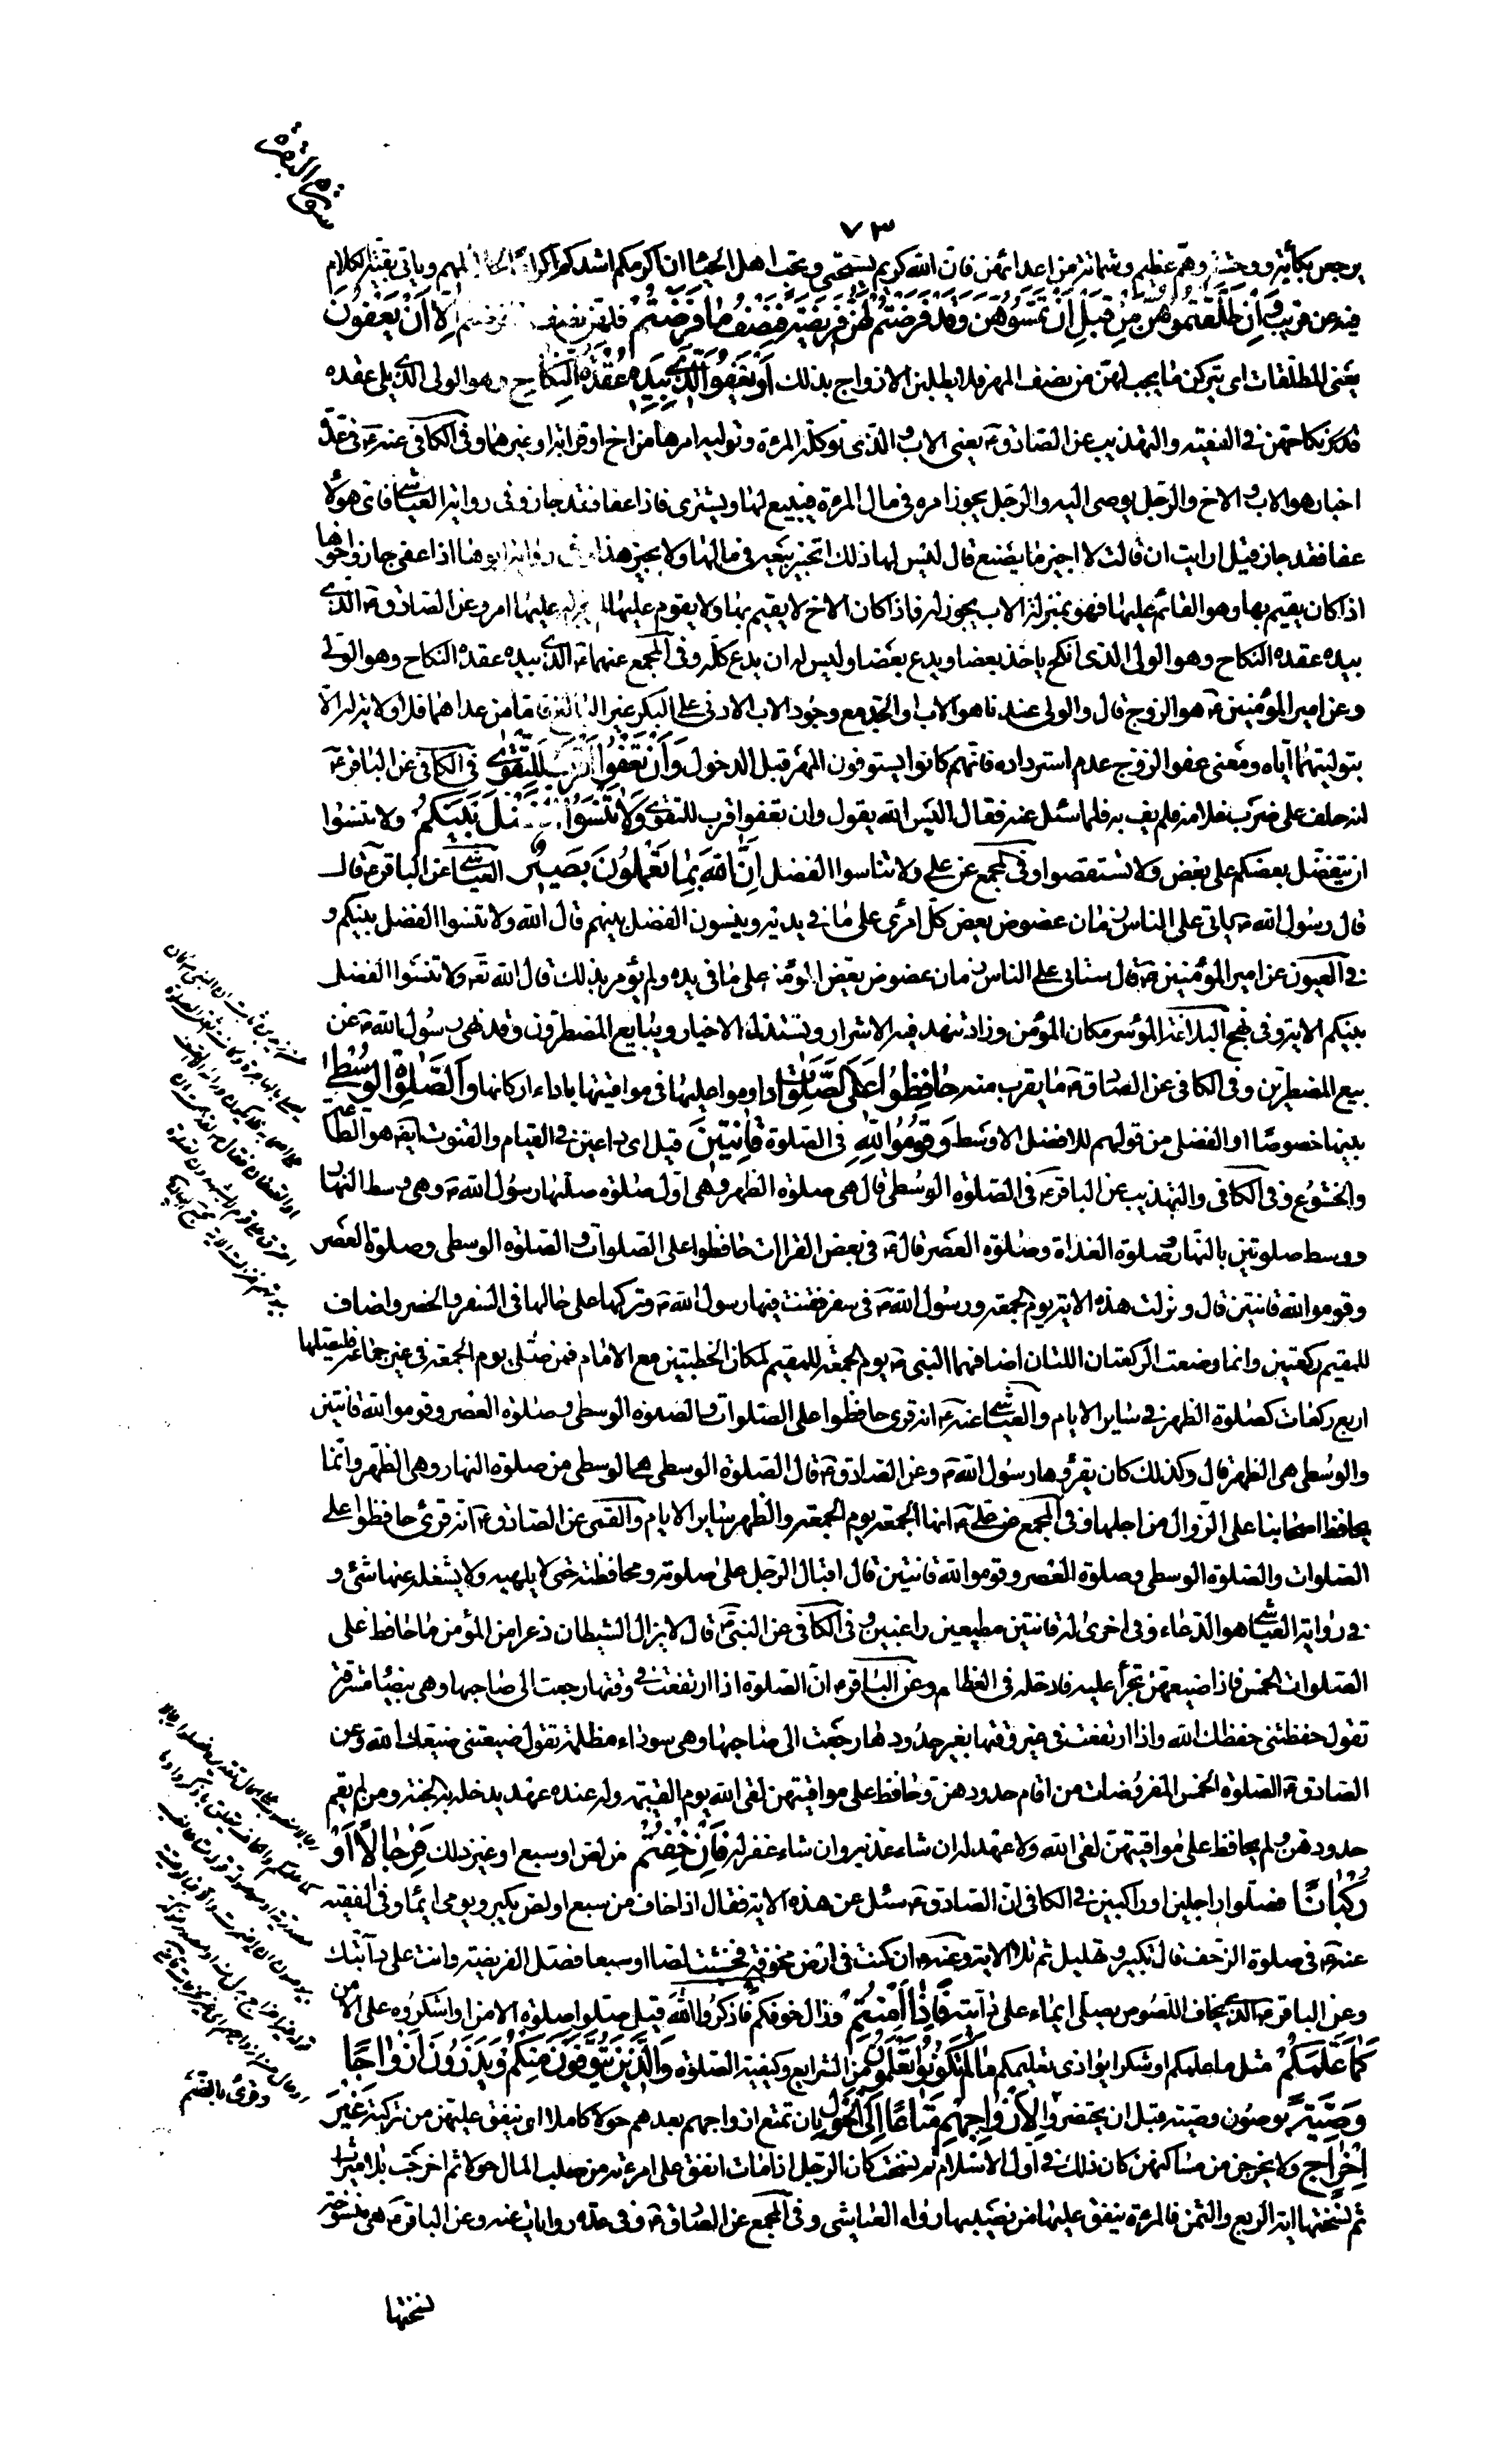 سورة البقرة
٧٣
يرجعن بكأبة ووحشة وهمّ عظيم وشماتة من اعدائهن فان الله كريم يستحيي ويحب اهل الحياء ان اكرمكم اشدكم اكراما لحلائلهم ويأتي بقية الكلام
فيه عن قريب وَاِنْ طَلَّقْتُمُوهُنَّ مِنْ قَبْلِ اَنْ تَمَسُّوهُنَّ وَقَدْ فَرَضْتُمْ لَهُنَّ فَرِيضَةً فَنِصْفُ مَا فَرَضْتُمْ فلهن نصف ما فرضتم اِلَّا اَنْ يَعْفُونَ
يعني المطلقات اي يتركن ما يجب لهن من نصف المهر فلا يطلبن الازواج بذلك اَوْ يَعْفُوَ الَّذِي بِيَدِهِ عُقْدَةُ النِّكَاحِ وهو الولي الذي يلي عقده
نكاحهن في الفقيه والتهذيب عن الصادق ع يعني الاب والذي توكله المرءة وتوليه امرها من اخ او قرابة او غيرهما وفي الكافي عنه ع في عدّة
اخبار هو الاب والاخ والرجل يوصى اليه والرجل يجوز امره في مال المرءة فيبيع لها ويشتري فاذا عفا فقد جاز وفي رواية العياشي فاي هؤلا
عفا فقد جاز قيل ارايت ان قالت لا اجيز ما يصنع قال ليس لها ذلك اتجيز بيعه في مالها ولا تجيز هذا وفي رواية ابوها اذا عفى جاز واخوها
اذا كان يقيم بها وهو القائم عليها فهو بمنزلة الاب يجوز له فاذا كان الاخ لا يقيم بها ولا يقوم عليها لم يجز عليها امره وعن الصادق ع الذي
بيده عقدة النكاح وهو الولي الذي انكح ياخذ بعضا ويدع بعضا وليس له ان يدع كله وفي المجمع عنهما ع الذي بيده عقدة النكاح وهو الولي
وعن امير المؤمنين ع هو الزوج قال والولي عندنا هو الاب او الجد مع وجود الاب الادنى على البكر غير البالغ فاما من عداهما فلا ولاية له الا
بتوليتها اياه ومعنى عفو الزوج عدم استرداده فانهم كانوا يستوفون المهر قبل الدخول وَاَنْ تَعْفُوا اَقْرَبُ لِلتَّقْوَى في الكافي عن الباقر ع
انه حلف على ضرب غلامه فلم يف به فلما سئل عنه فقال اليس الله يقول وان تعفوا اقرب للتقوى وَلَا تَنْسَوُا الْفَضْلَ بَيْنَكُمْ ولا تنسوا
ان يتفضل بعضكم على بعض ولا تستقصوا وفي المجمع عن علي ولا تناسوا الفضل اِنَّ اللهَ بِمَا تَعْمَلُونَ بَصِيرٌ العياشي عن الباقر ع قال
قال رسول الله ص ياتي على الناس زمان عضوض يعض كل امرئ على ما في يديه وينسون الفضل بينهم قال الله ولا تنسوا الفضل بينكم و
في العيون عن امير المؤمنين ع قال سيأتي على الناس زمان عضوض يعض المؤمن على ما في يده ولم يؤمر بذلك قال الله تع ولا تنسوا الفضل
بينكم الاية وفي نهج البلاغة الموسر مكان المؤمن وزاد تنهد فيه الاشرار وتستذل الاخيار ويبايع المضطرون وقد نهى رسول الله ص عن
بيع المضطرين وفي الكافي عن الصادق ع ما يقرب منه حَافِظُوا عَلَى الصَّلَوَاتِ داوموا عليها في مواقيتها باداء اركانها وَالصَّلٰوةِ الْوُسْطَى
بينها خصوصا او الفضلى من قولهم للافضل الاوسط وَقُومُوا لِلّٰهِ في الصلوة قَانِتِينَ قيل اي داعين في القيام والقنوت ايضا هو الطاعة
والخشوع وفي الكافي والتهذيب عن الباقر ع في الصلوة الوسطى قال هي صلوة الظهر وهي اول صلوة صلاها رسول الله ص وهي وسط النهار
ووسط صلوتين بالنهار صلوة الغداة وصلوة العصر قال ع في بعض القراات حافظوا على الصلوات والصلوة الوسطى وصلوة العصر
وقوموا لله قانتين قال ونزلت هذه الاية يوم الجمعة ورسول الله ص في سفر فقنت فيها رسول الله ص وتركها على حالها في السفر والحضر واضاف
للمقيم ركعتين وانما وضعت الركعتان اللتان اضافهما النبي ص يوم الجمعة للمقيم لمكان الخطبتين مع الامام فمن صلى يوم الجمعة في غير جماعة فليصلها
اربع ركعات كصلوة الظهر في ساير الايام والعياشي عنه ع انه قرى حافظوا على الصلوات والصلوة الوسطى وصلوة العصر وقوموا لله قانتين
والوسطى هي الظهر قال وكذلك كان يقرؤها رسول الله ص وعن الصادق ع قال الصلوة الوسطى هي الوسطى من صلوة النهار وهي الظهر وانما
يحافظ اصحابنا على الزوال من اجلها وفي المجمع عن علي ع انها الجمعة يوم الجمعة والظهر ساير الايام والقمي عن الصادق ع انه قرئ حافظوا على
الصلوات والصلوة الوسطى وصلوة العصر وقوموا لله قانتين قال اقبال الرجل على صلوته ومحافظته حتى لا يلهيه ولا يشغله عنها شئ و
في رواية العياشي هو الدعاء وفي اخرى له قانتين مطيعين راغبين وفي الكافي عن النبي ص قال لا يزال الشيطان ذعرا من المؤمن ما حافظ على
الصلوات الخمس فاذا ضيعهن تجرأ عليه فادخله في العظائم وعن الباقر ع ان الصلوة اذا ارتفعت في وقتها رجعت الى صاحبها وهي بيضاء مشرقة
تقول حفظتني حفظك الله واذا ارتفعت في غير وقتها بغير حدودها رجعت الى صاحبها وهي سوداء مظلمة تقول ضيعتني ضيعك الله وعن
الصادق ع الصلوة الخمس المفروضات من اقام حدودهن وحافظ على مواقيتهن لقى الله يوم القيمة وله عنده عهد يدخله به الجنة ومن لم يقم
حدودهن ولم يحافظ على مواقيتهن لقى الله ولا عهد له ان شاء عذبه وان شاء غفر له فَاِنْ خِفْتُمْ من لص او سبع او غير ذلك فَرِجَالًا اَوْ
رُكْبَانًا فصلوا راجلين او راكبين في الكافي ان الصادق ع سئل عن هذه الاية فقال اذا خاف من سبع او لص يكبر ويومي ايماء وفي الفقيه
عنه ع في صلوة الزحف قال تكبير وتهليل ثم تلا الاية وعنه ع ان كنت في ارض مخوفة فخشيت لصا او سبعا فصل الفريضة وانت على دآبتك
وعن الباقر ع الذي يخاف اللصوص يصلي ايماء على دآبته فَاِذَا اَمِنْتُمْ وزال خوفكم فَاذْكُرُوا اللهَ قيل صلوا صلوة الامن او اشكروه على الامن
كَمَا عَلَّمَكُمْ مثل ما علمكم او شكرا يوازي تعليمكم مَا لَمْ تَكُونُوا تَعْلَمُونَ من الشرايع وكيفية الصلوة وَالَّذِينَ يُتَوَفَّوْنَ مِنْكُمْ وَيَذَرُونَ اَزْوَاجًا
وَصِيَّةً يوصون وصية قبل ان يحتضروا لِاَزْوَاجِهِمْ مَتَاعًا اِلَى الْحَوْلِ بان تمتع ازواجهم بعدهم حولا كاملا اي ينفق عليهن من تركته غَيْرَ
اِخْرَاجٍ ولا يخرجن من مساكنهن كان ذلك في اول الاسلام ثم نسخت كان الرجل اذا مات انفق على امرءته من صلب المال حولا ثم اخرجت بلا ميراث
ثم نسختها اية الربع والثمن فالمرءة ينفق عليها من نصيبها رواه العياشي وفي المجمع عن الصادق ع وفي عدة روايات عنه وعن الباقر ع هي منسوخة
نسختها
وقرئ بالضم